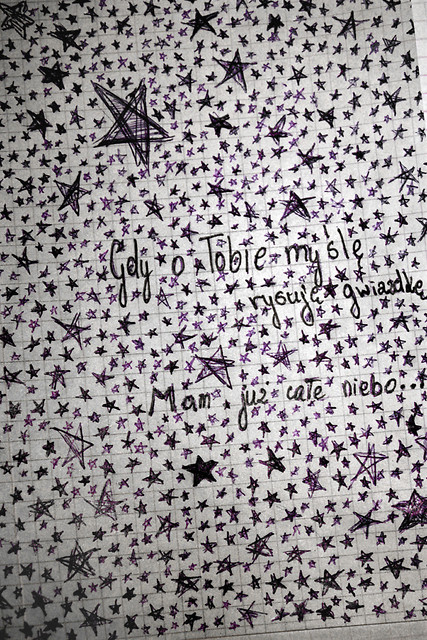 Gdy o Tobie myślę
rysuję gwiazdkę
Mam już całe niebo...